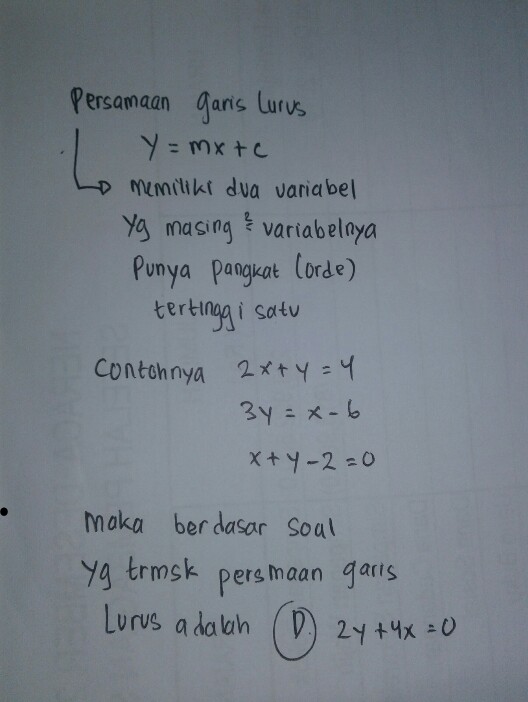 Persamaan garis lurus
y = mx + c
memiliki dua variabel
yg masing² variabelnya
Punya pangkat (orde)
tertinggi satu
Contohnya 2x + y = 4
3y = x - 6
x + y - 2 = 0
maka berdasar soal
yg trmsk persmaan garis
Lurus adalah D. 2y + 4x = 0